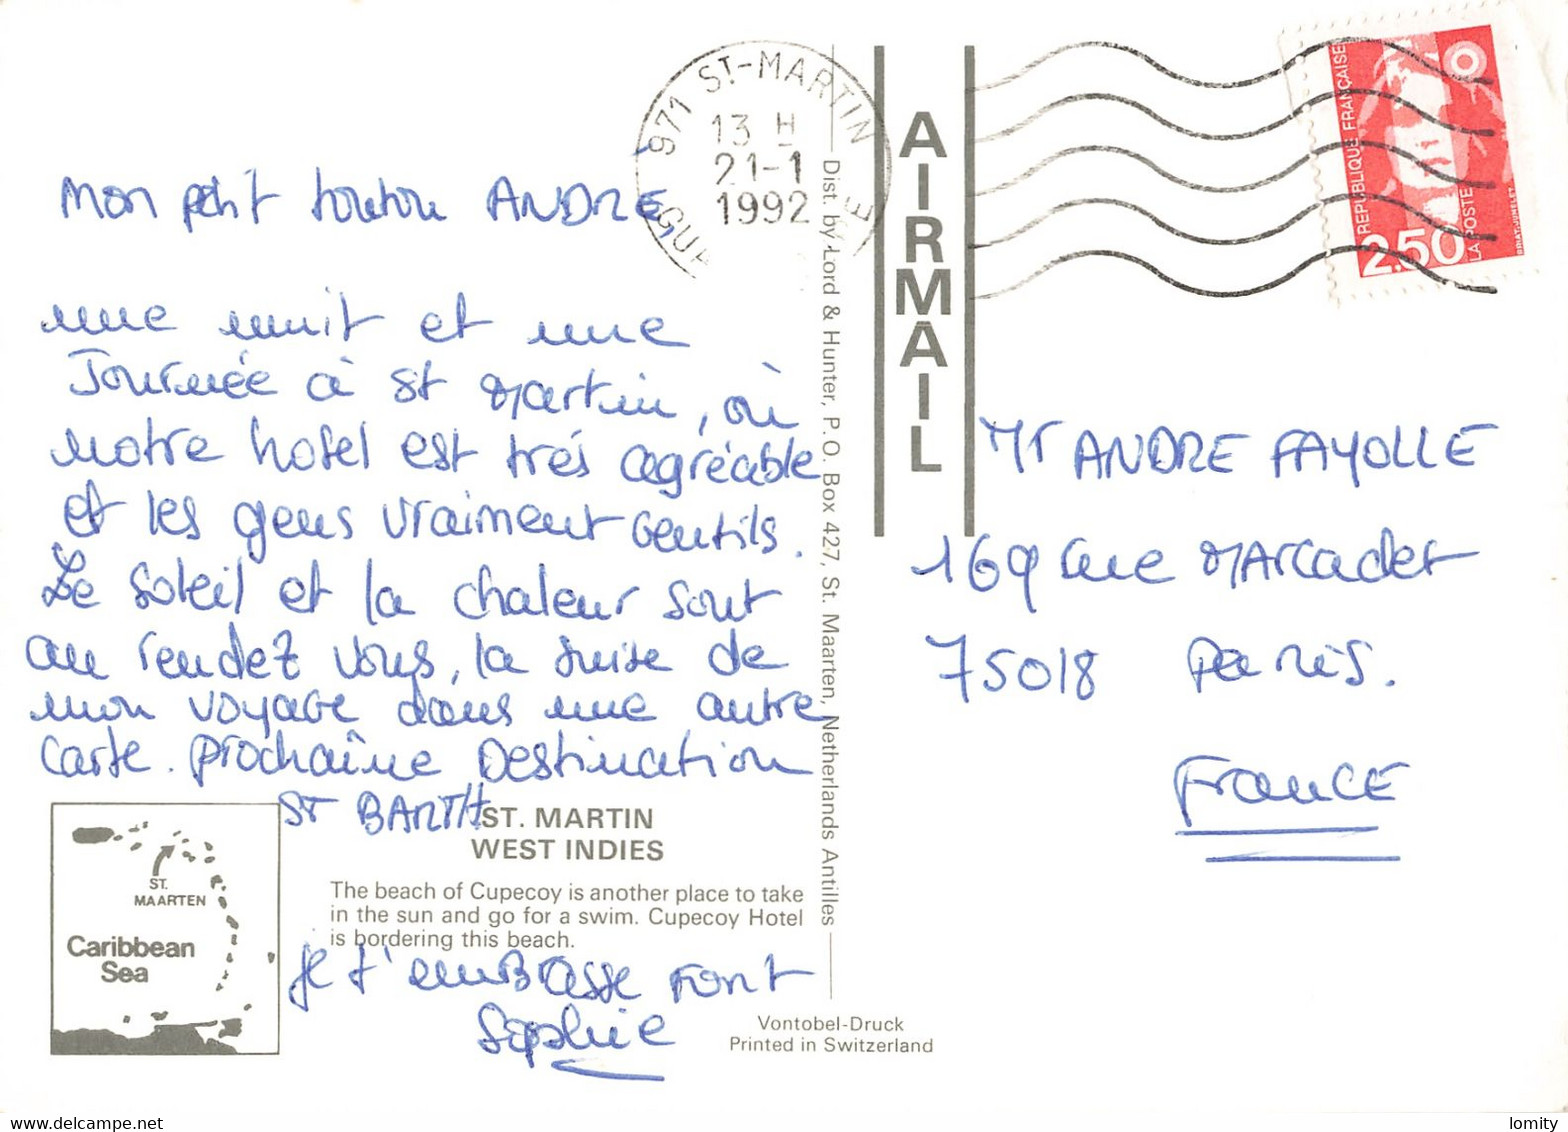 971 ST-MARTIN
13 H
21-1
1992
GUA E
AIRMAIL
REPUBLIQUE FRANÇAISE
LA POSTE
2.50
mon petit toutou ANDRÉ,
une nuit et une
Journée à St Martin, où
notre hotel est très agréable
et les gens vraiment Gentils.
Le soleil et la chaleur sont
au rendez vous, la suite de
mon voyage dans une autre
carte. Prochaîne Destination
ST BARTH
ST. MARTIN
WEST INDIES
The beach of Cupecoy is another place to take
in the sun and go for a swim. Cupecoy Hotel
is bordering this beach.
Je t'emBrasse Font
Sophie
ST.
MAARTEN
Caribbean
Sea
Dist. by Lord & Hunter, P.O. Box 427, St. Maarten, Netherlands Antilles
Vontobel-Druck
Printed in Switzerland
Mr ANDRE FAYOLLE
169 rue MARCADET
75018 PARIS.
FRANCE
www.delcampe.net
lomity